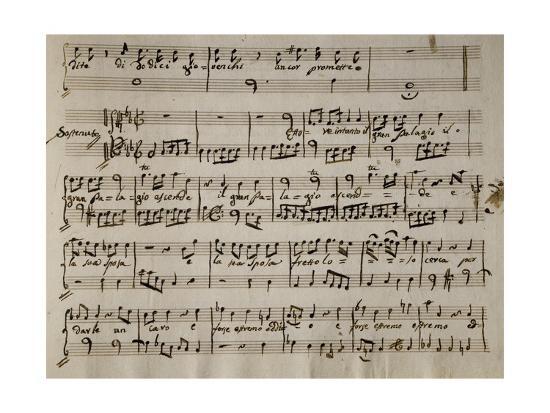 dito di dodici giovenchi ancor promette.
Sostenuto Ettore intanto il gran palagio il
tr tr
gran Pa= la= gio ascende il gran Pa= la= gio ascend= = = de e
la sua sposa e la sua sposa fretto lo= = = = so cerca per
darle un caro e forse estremo addio o e forse estremo estremo ad=